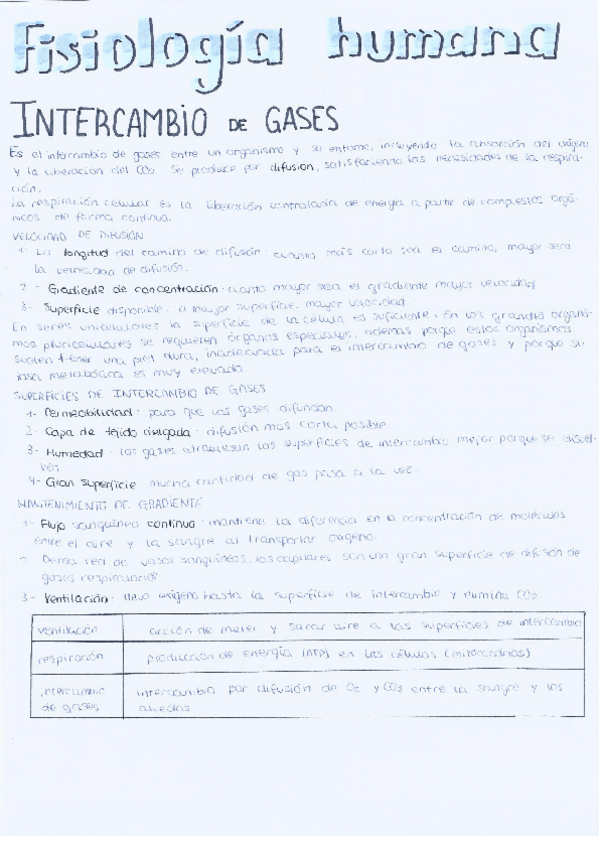 Fisiología humana
INTERCAMBIO DE GASES
Es el intercambio de gases entre un organismo y su entorno, incluyendo la absorción del oxígeno
y la liberación del CO2. Se produce por difusión, satisfaciendo las necesidades de la respira-
ción.
La respiración celular es la liberación controlada de energía a partir de compuestos orgá-
nicos de forma continua.
VELOCIDAD DE DIFUSIÓN
1- La longitud del camino de difusión: cuanto más corto sea el camino, mayor será
la velocidad de difusión.
2- Gradiente de concentración: cuanto mayor sea el gradiente mayor velocidad
3- Superficie disponible: a mayor superficie, mayor velocidad.
En seres unicelulares la superficie de la célula es suficiente. En los grandes organis-
mos pluricelulares se requieren órganos especiales, además porque estos organismos
suelen tener una piel dura, inadecuada para el intercambio de gases y porque su
tasa metabólica es muy elevada.
SUPERFICIES DE INTERCAMBIO DE GASES
1- Permeabilidad: para que los gases difundan.
2- Capa de tejido delgada: difusión más corta posible.
3- Humedad: los gases atraviesan las superficies de intercambio mejor porque se disuel-
ven
4- Gran superficie: mucha cantidad de gas pasa a la vez.
MANTENIMIENTO DE GRADIENTE
1- Flujo sanguíneo continuo: mantiene la diferencia en la concentración de moléculas
entre el aire y la sangre al transportar oxígeno.
2- Densa red de vasos sanguíneos, los capilares son una gran superficie de difusión de
gases respiratorios
3- Ventilación: lleva oxígeno hasta la superficie de intercambio y elimina CO2.
ventilación acción de meter y sacar aire a las superficies de intercambio
respiración producción de energía (ATP) en las células (mitocondrias)
intercambio de gases intercambio por difusión de O2 y CO2 entre la sangre y los
alveolos